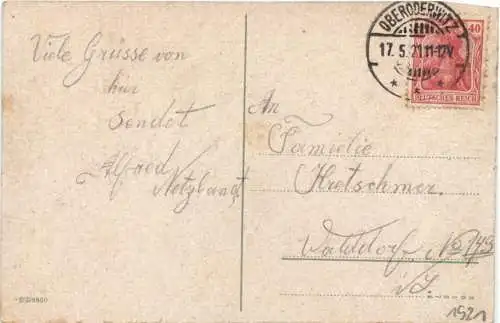 Viele Grüsse von
hier
sendet
Alfred
Netzbandt
An
Familie
Kretschmer.
Walddorf. No 143
i/S.
1921
OBERODERWITZ
17.5.21.11-12V.
40
DEUTSCHES REICH